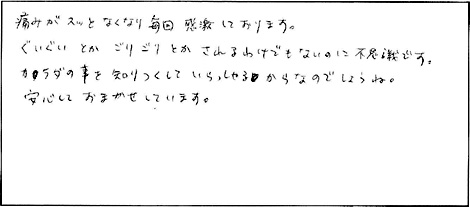 痛みがスッとなくなり毎回感激しております。
ぐいぐいとかごりごりとかされるわけでもないのに不思議です。
カラダの事を知りつくしていらっしゃるからなのでしょうね。
安心しておまかせしています。